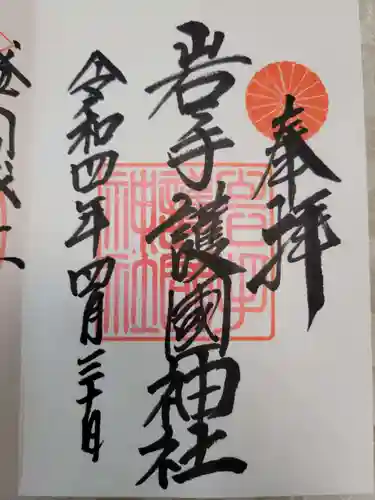 奉拝
岩手護國神社
令和四年四月三十日